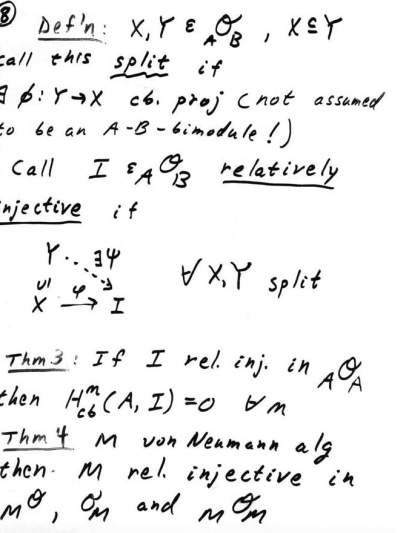 8
Def'n: X, Y ε AOB, X ⊆ Y
call this split if
∃ ϕ: Y→X cb. proj (not assumed
to be an A-B-bimodule!)
Call I ε AOB relatively
injective if
Y ∃ψ
∪I
X φ→ I ∀ X,Y split
Thm 3: If I rel. inj. in AOA
then Hᵐcb(A, I) = 0 ∀m
Thm 4 M von Neumann alg
then M rel. injective in
MO, OM and MOM